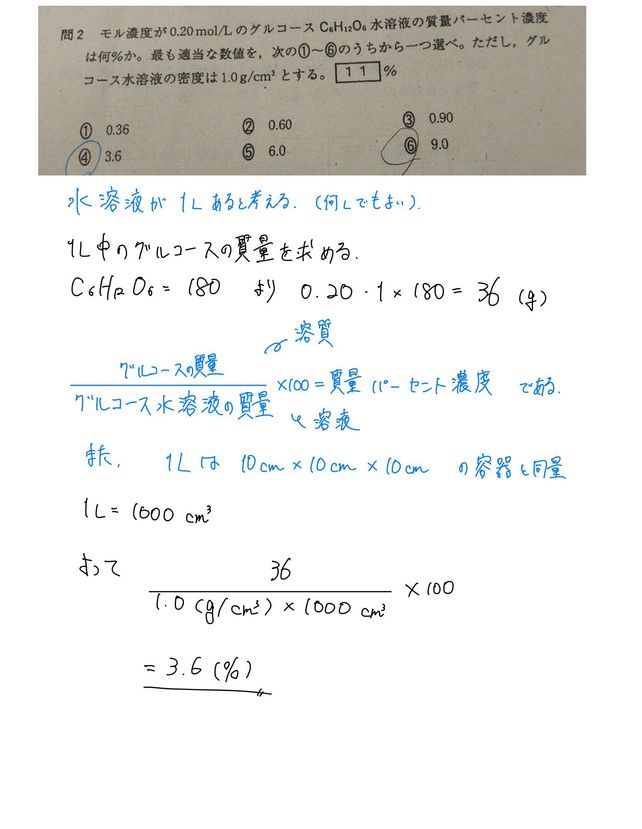 問2 モル濃度が0.20mol/LのグルコースC₆H₁₂O₆水溶液の質量パーセント濃度
は何%か。最も適当な数値を，次の①〜⑥のうちから一つ選べ。ただし，グル
コース水溶液の密度は1.0g/cm³とする。 11 %
① 0.36 ② 0.60 ③ 0.90
④ 3.6 ⑤ 6.0 ⑥ 9.0
水溶液が1Lあると考える.(何Lでもよい).
1L中のグルコースの質量を求める.
C₆H₁₂O₆ = 180 より 0.20・1×180 = 36 (g)
溶質
グルコースの質量
×100 = 質量パーセント濃度 である.
グルコース水溶液の質量
溶液
また, 1Lは 10cm×10cm×10cm の容器と同量
1L = 1000 cm³
よって
36
1.0 (g/cm³) × 1000 cm³
×100
= 3.6 (%)